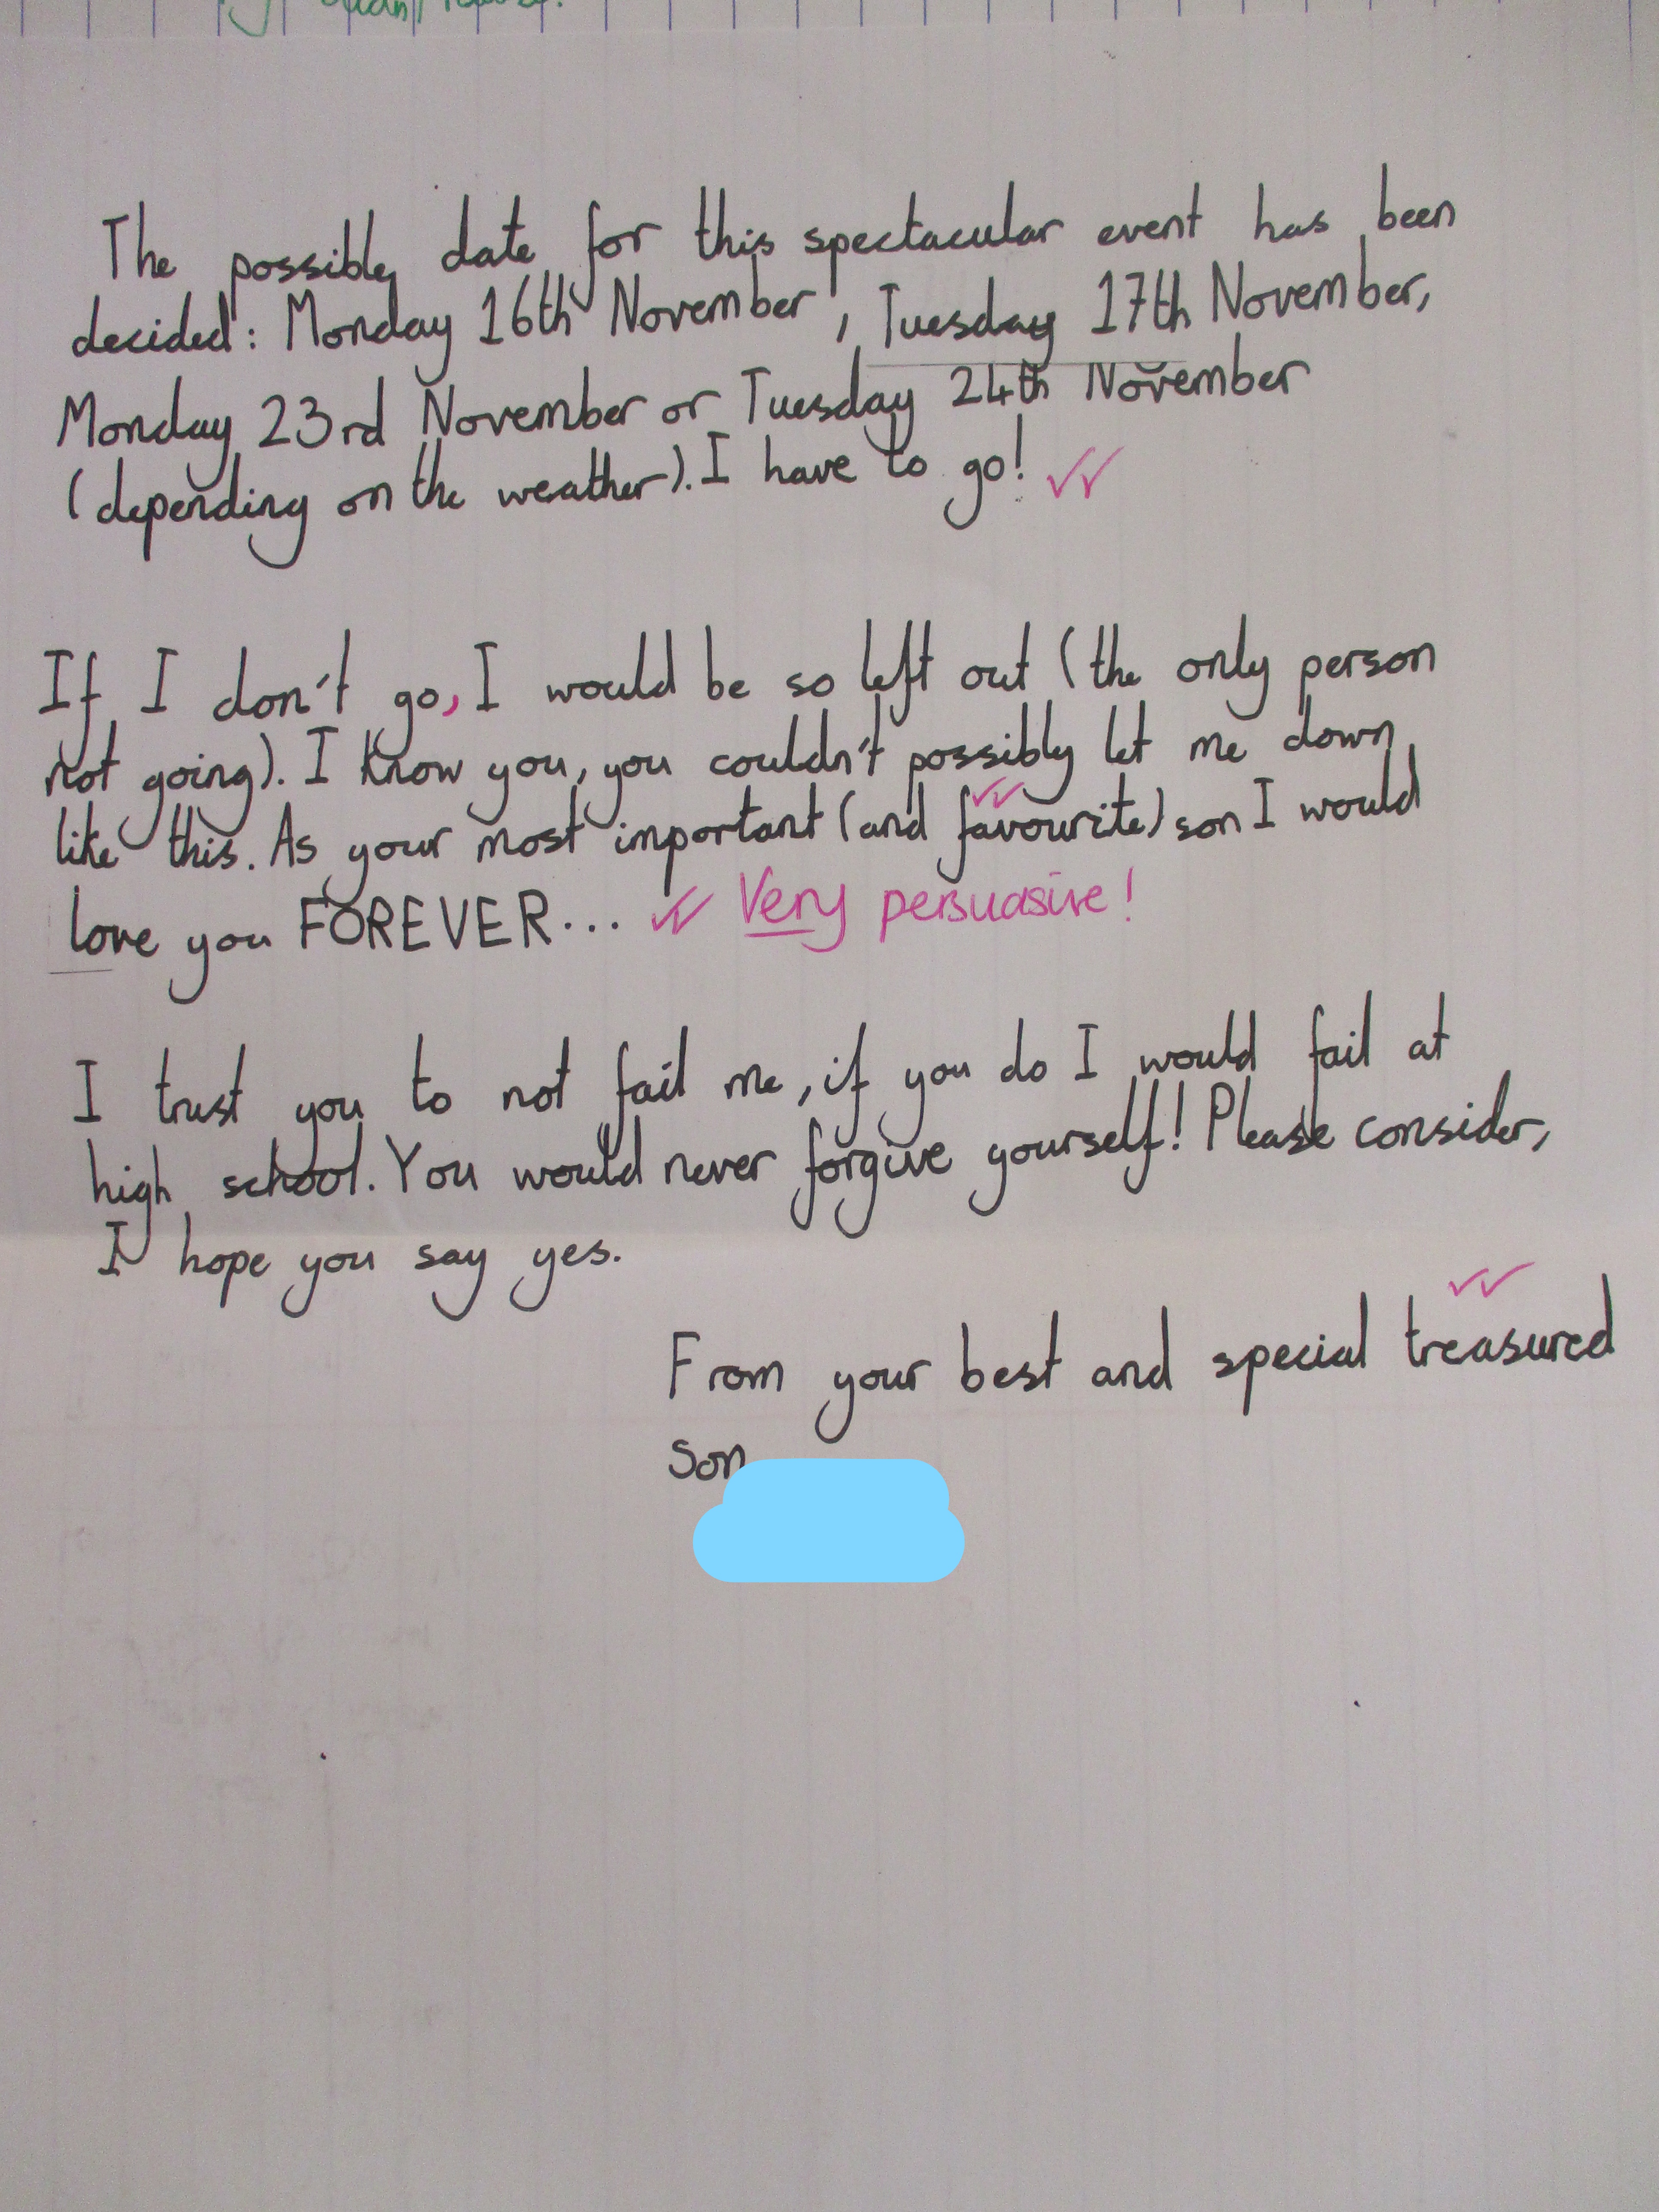 The possibly date for this spectacular event has been
decided: Monday 16th November, Tuesday 17th November,
Monday 23rd November or Tuesday 24th November
(depending on the weather). I have to go!
If I don't go, I would be so left out (the only person
not going). I know you, you couldn't possibly let me down
like this. As your most important (and favourite) son I would
love you FOREVER... Very persuasive!
I trust you to not fail me, if you do I would fail at
high school. You would never forgive yourself! Please consider,
I hope you say yes.
From your best and special treasured
son